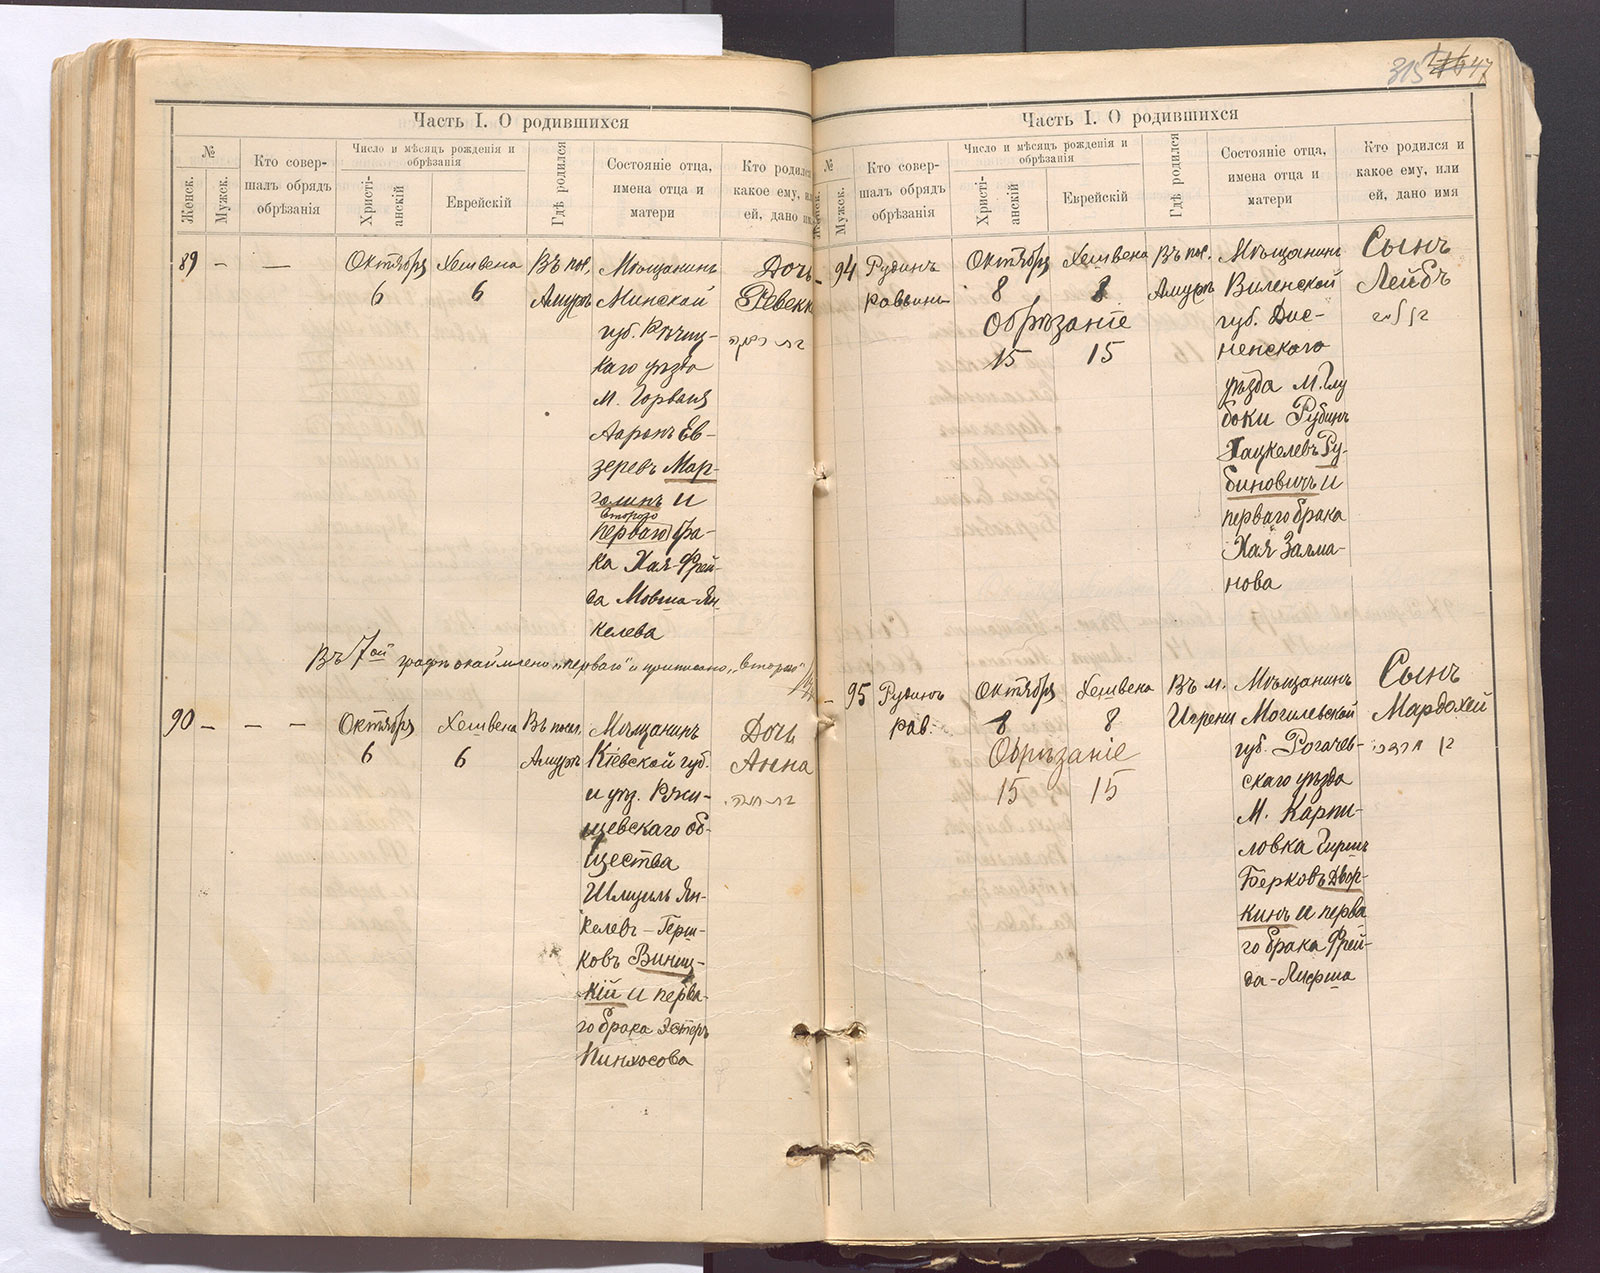 315 47
Часть I. О родившихся
№
Женск.
Мужск.
Кто совер-
шалъ обрядъ
обрѣзанія
Число и мѣсяцъ рожденія и
обрѣзанія
Христі-
анскій
Еврейскій
Гдѣ родился
Состояніе отца,
имена отца и
матери
Кто родился
какое ему, или
ей, дано имя
89 – —
Октября
6
Хешвена
6
Въ пос.
Амуръ
Мѣщанинъ
Минской
губ. Рѣчиц-
каго уѣзда
м. Горваля
Ааронъ Ев-
зеревъ Мар-
голинъ и
второго
перваго бра-
ка Хая-Фрей-
да Мовша-Ян-
келева
Дочь
Ревекк
בת רבקה
Въ 7ой графѣ окаймлено „перваго" и приписано „второго"
90 – – –
Октября
6
Хешвена
6
Въ посел.
Амуръ
Мѣщанинъ
Кіевской губ.
и уѣз. Ржи-
щевскаго об-
щества
Шмуль Ян-
келевъ-Герш-
ковъ Винниц-
кій и перва-
го брака Эстеръ
Пинхосова
Дочь
Анна
בת חנה
Часть I. О родившихся
№
Женск.
Мужск.
Кто совер-
шалъ обрядъ
обрѣзанія
Число и мѣсяцъ рожденія и
обрѣзанія
Христі-
анскій
Еврейскій
Гдѣ родился
Состояніе отца,
имена отца и
матери
Кто родился и
какое ему, или
ей, дано имя
– 94
Рудинъ
раввинъ
Октября
8
Хешвена
8
Обрѣзаніе
15 15
Въ пос.
Амуръ
Мѣщанинъ
Виленской
губ. Дис-
ненскаго
уѣзда м. Глу
боки Рубинъ
Хацкелевъ Ру-
биновичъ и
перваго брака
Хая Залма-
нова
Сынъ
Лейбъ
בן לייב
– 95
Рудинъ
рав.
Октября
8
Хешвена
8
Обрѣзаніе
15 15
Въ м.
Игрени
Мѣщанинъ
Могилевской
губ. Рогачев-
скаго уѣзда
м. Карпи-
ловка Гиршъ
Берковъ Двор-
кинъ и перва
го брака Фрей-
да-Лифша
Сынъ
Мардохей
בן מרדכי